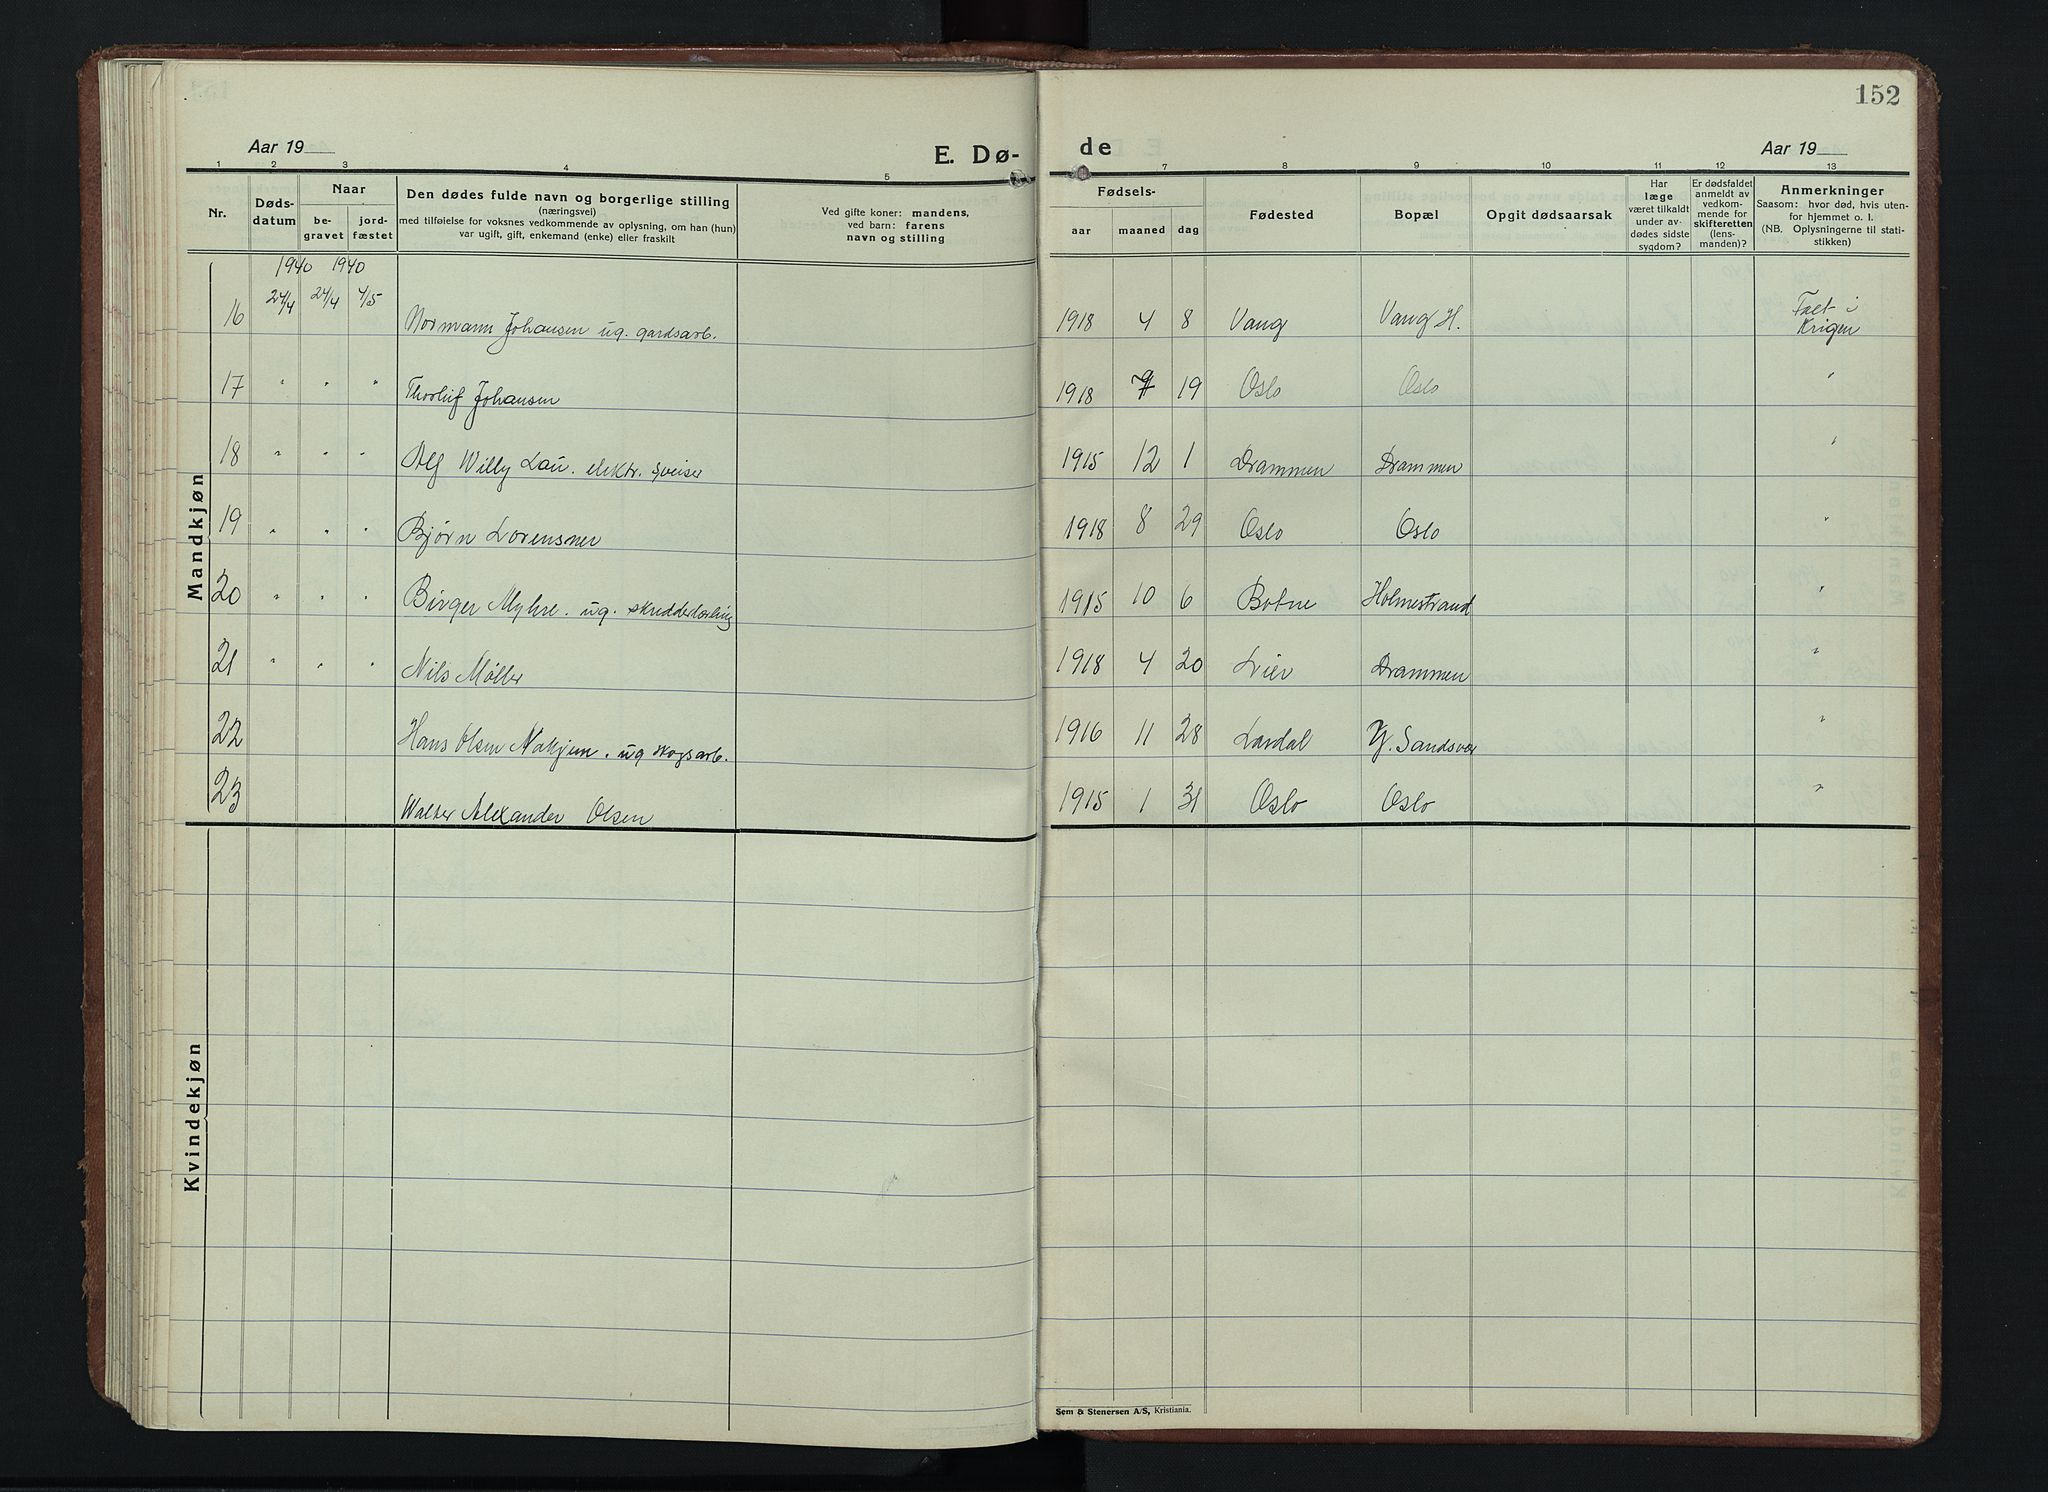 152
Aar 19
E. Dø-
de
Aar 19
1 2 3 4 5 7 8 9 10 11 12 13
Nr.
Døds-
datum
Naar
be-
gravet
jord-
fæstet
Den dødes fulde navn og borgerlige stilling
(næringsvei)
med tilføielse for voksnes vedkommende av oplysning, om han (hun)
var ugift, gift, enkemand (enke) eller fraskilt
Ved gifte koner: mandens,
ved barn: farens
navn og stilling
Fødsels-
aar maaned dag
Fødested
Bopæl
Opgit dødsaarsak
Har
læge
været tilkaldt
under av-
dødes sidste
sygdom?
Er dødsfaldet
anmeldt av
vedkom-
mende for
skifteretten
(lens-
manden)?
Anmerkninger
Saasom: hvor død, hvis uten-
for hjemmet o. l.
(NB. Oplysningerne til stati-
stikken)
Mandkjøn
1940 1940
16 24/4 24/4 4/5 Normann Johansen ug. gardsarb. 1918 4 8 Vang Vang H. Falt i
Krigen
17 " " " Thorleif Johansen 1918 9 19 Oslo Oslo "
18 " " " Alf Willy Lau. elektr. sveiser 1915 12 1 Drammen Drammen "
19 " " " Bjørn Lorensner 1918 8 29 Oslo Oslo "
20 " " " Birger Myhre. ug. skredderlærling 1915 10 6 Botne Holmestrand "
21 " " " Nils Møller 1918 4 20 Lier Drammen "
22 Hans Olsen Nakjem. ug skogsarb. 1916 11 28 Lardal Y. Sandsvær "
23 Walter Alexander Olsen 1915 1 31 Oslo Oslo "
Kvindekjøn
Sem & Stenersen A/S, Kristiania.